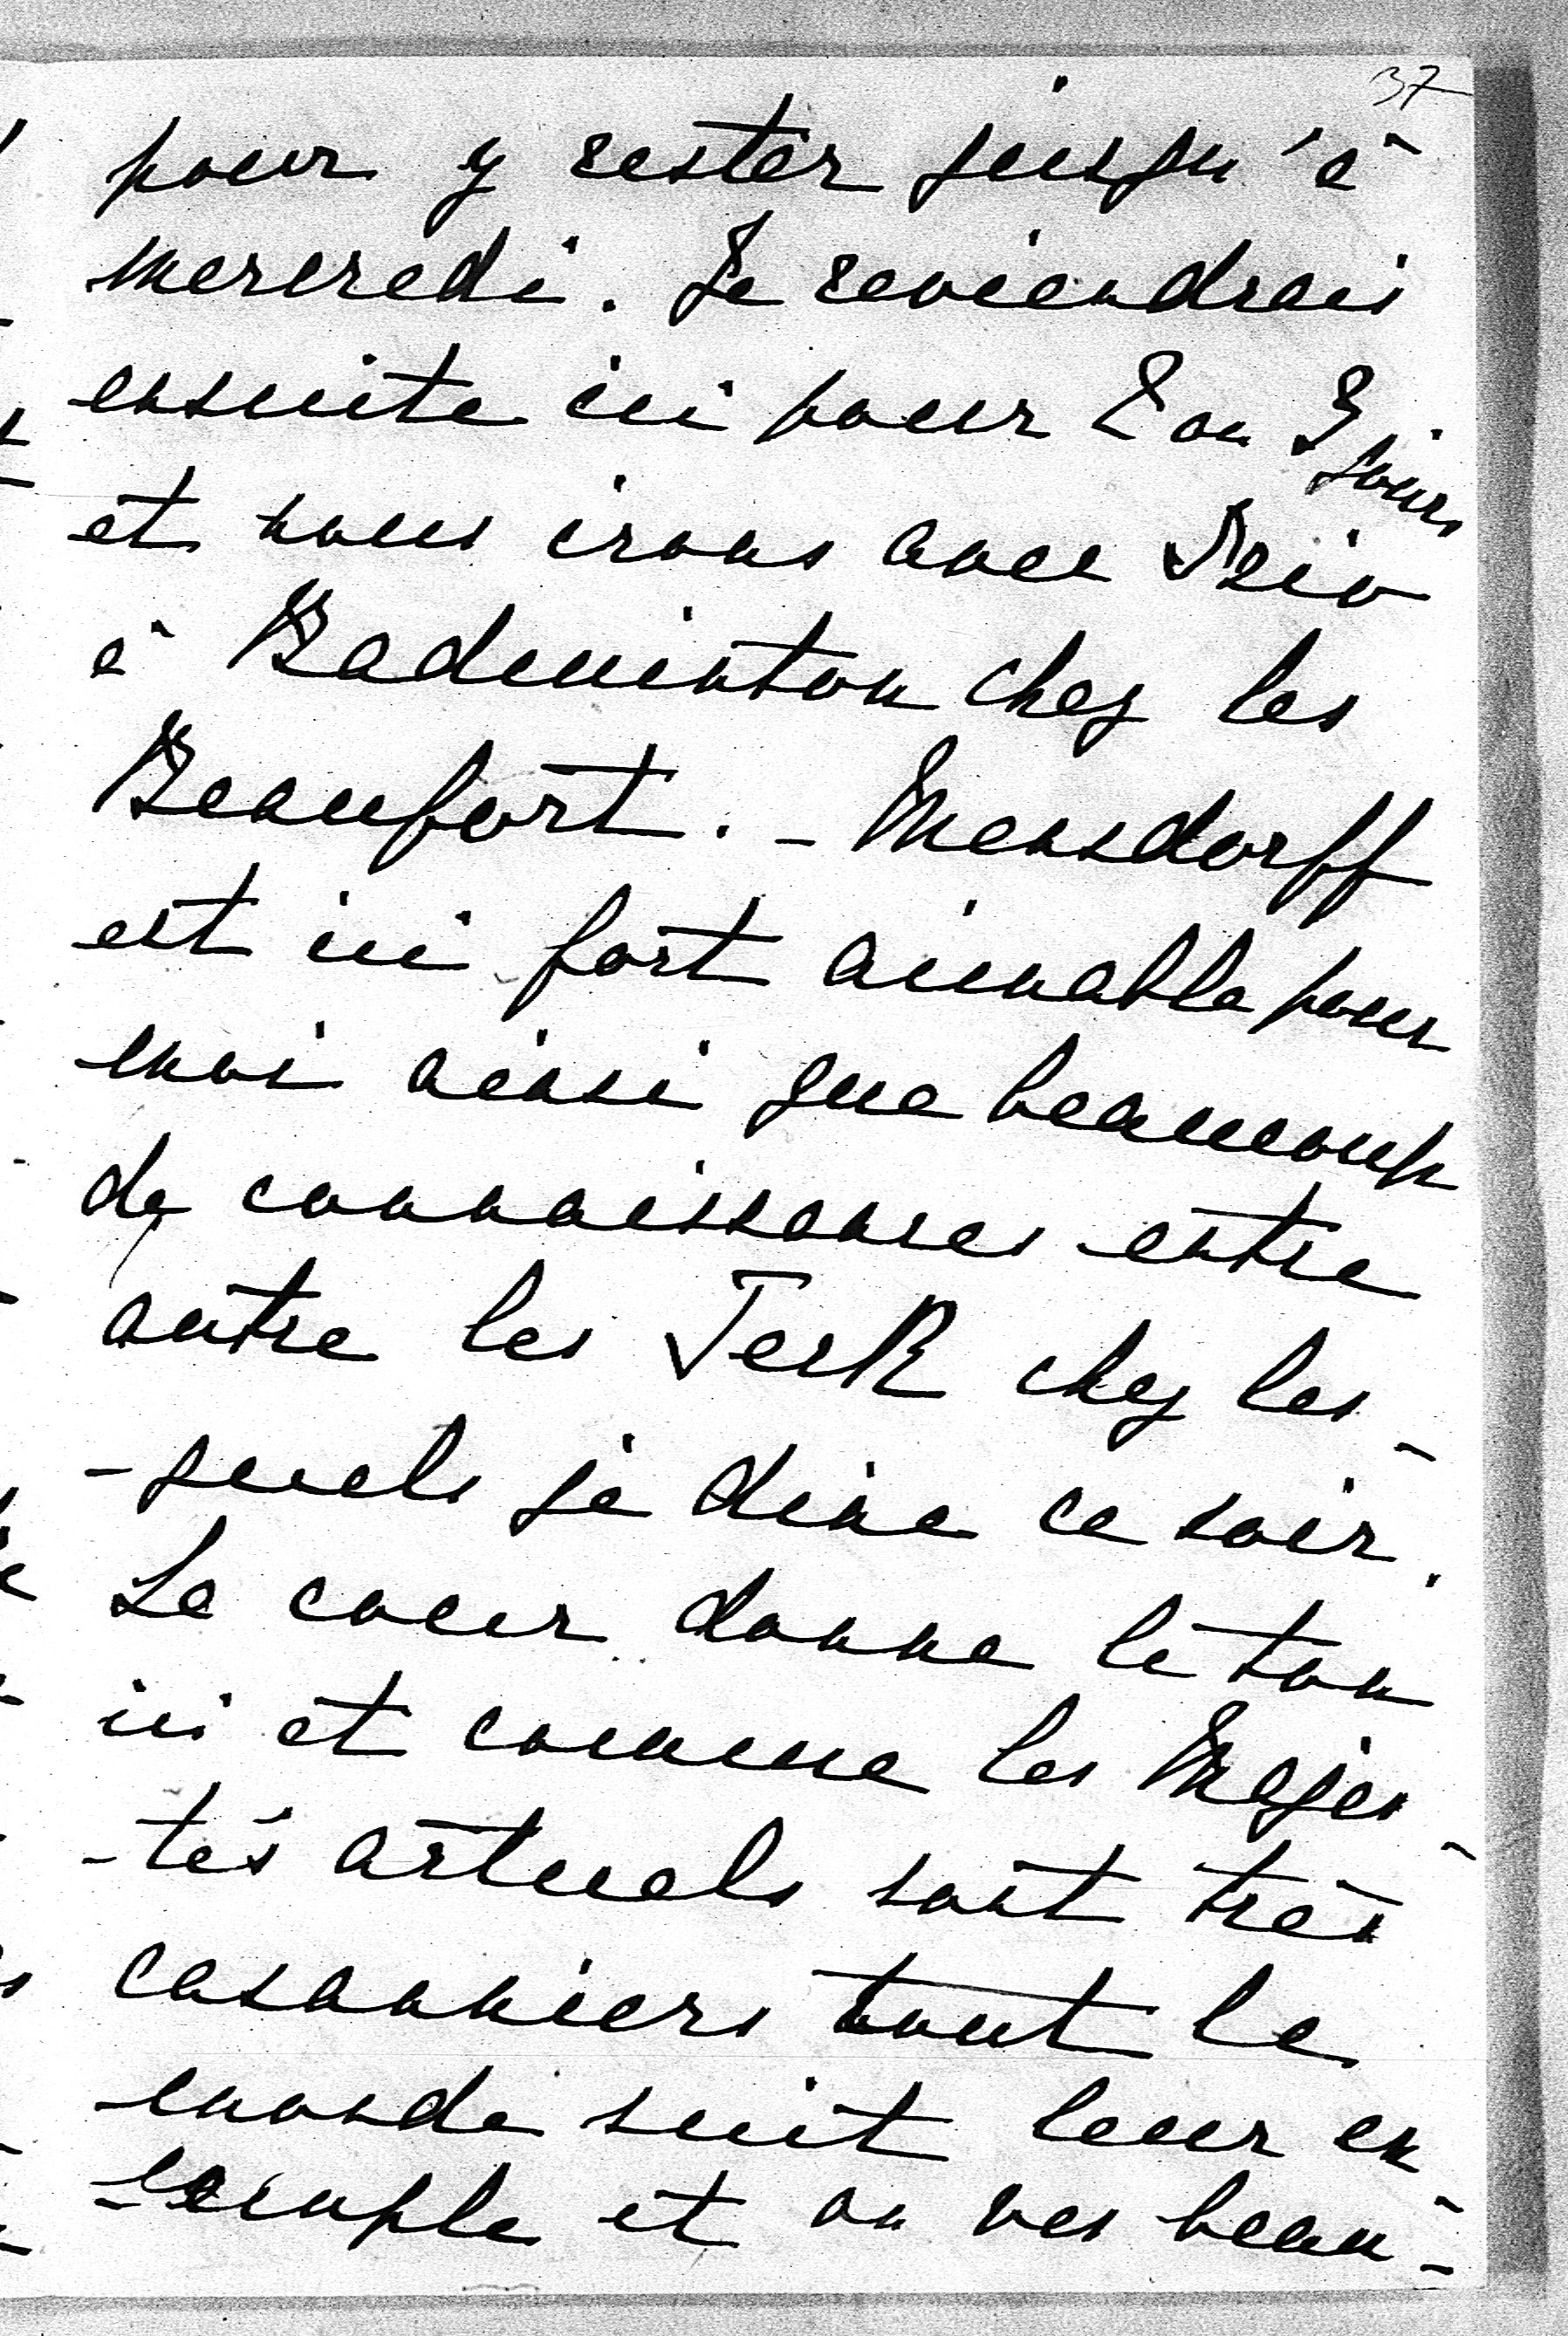 37
pour y rester jusqu'à
mercredi. Je reviendrai
ensuite ici pour 2 ou 3 jours
et nous irons avec Trio
à Badminton chez les
Beaufort. - Mensdorff
est ici fort aimable pour
moi ainsi que beaucoup
de connaissances entre
autre les Teck chez les-
-quels je dine ce soir.
La cour donne le ton
ici et comme les Majes-
-tés actuels sont très
casanniers tout le
monde suit leur ex-
-emple et on ves beau-